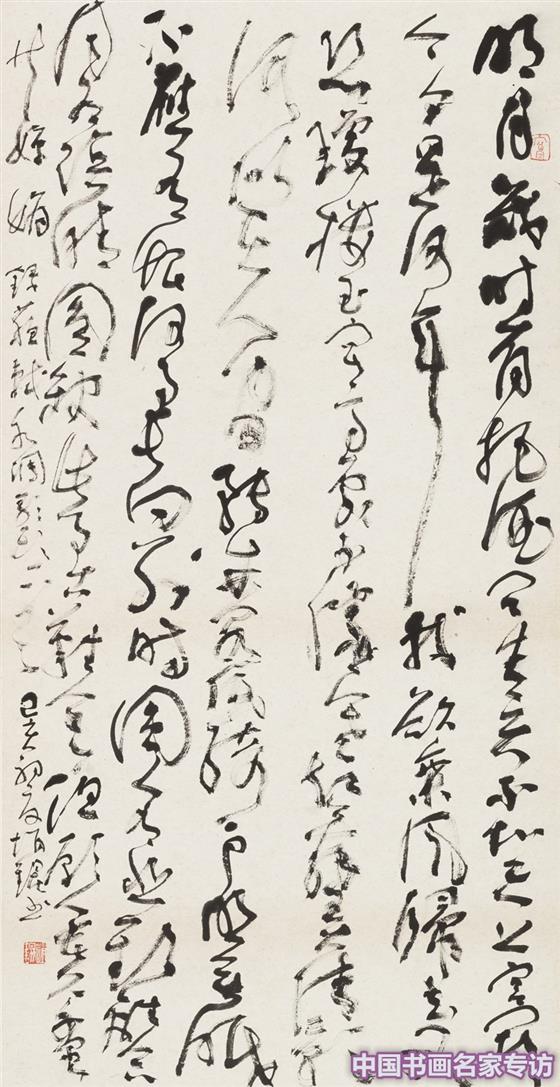 明月幾时有把酒问青天不知天上宫阙
今夕是何年我欲乘风歸去又
恐瓊樓玉宇高處不勝寒起舞弄清影
何似在人间轉朱阁低绮户照無眠
不應有恨何事长向别时圆人有悲歡離合
月有陰晴圆缺此事古難全但願人长久千里
共嬋娟 録蘇軾水调歌头一首 己亥初夏 书
中国书画名家专访